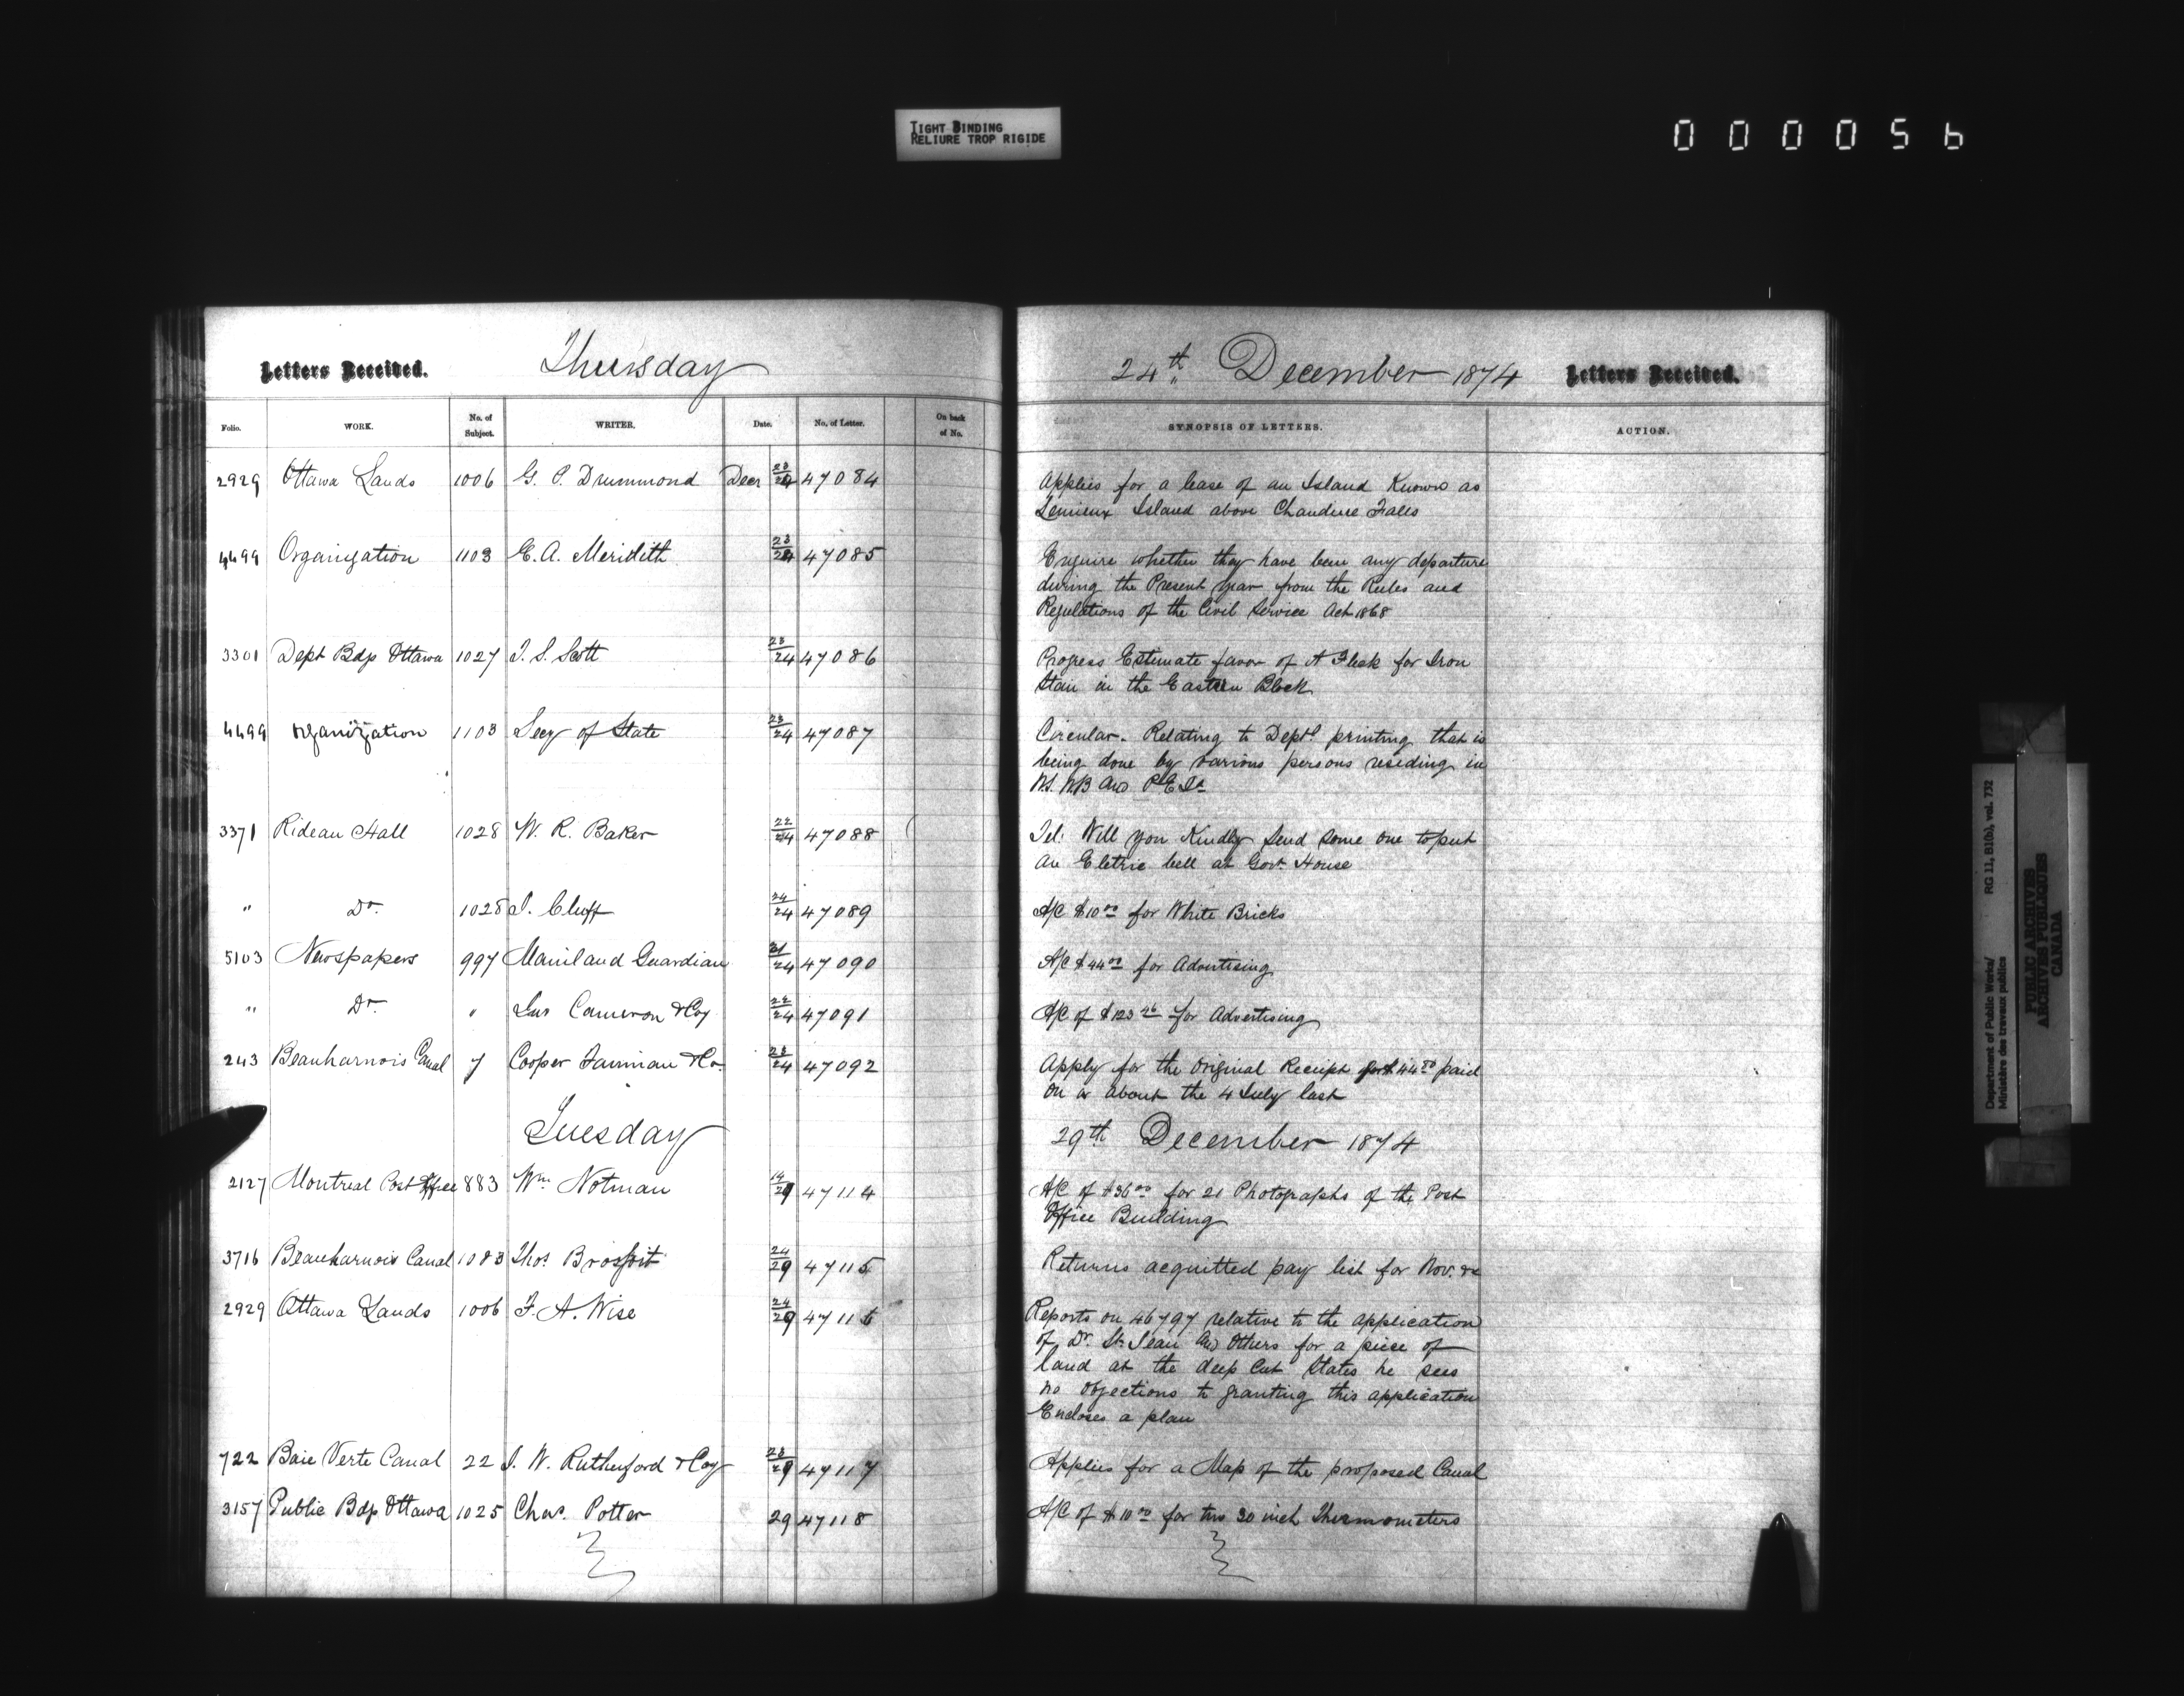 TIGHT BINDING
RELIURE TROP RIGIDE
000056
Letters Received.
Thursday
24th December 1874
Letters Received.
Folio.
WORK.
No. of Subject.
WRITER.
Date.
No. of Letter.
On back of No.
SYNOPSIS OF LETTERS.
ACTION.
2929 Ottawa Lands 1006 G. P. Drummond Decr 23/24 47084
Applies for a lease of an Island Known as
Lemieux Island above Chaudiere Falls
4499 Organization 1103 E. A. Meridith 23/24 47085
Enquire whether they have been any departure
during the Present year from the Rules and
Regulations of the Civil Service Act 1868
3301 Dept Bdgs Ottawa 1027 T. S. Scott 23/24 47086
Progress Estimate favor of A Fleck for Iron
Stair in the Eastern Block
4499 Organization 1103 Secy of State 23/24 47087
Circular. Relating to Deptl printing that is
being done by various persons residing in
N.S. N.B and P E Id
3371 Rideau Hall 1028 W. R. Baker 22/24 47088
Tel: Will you Kindly send some one to put
an Eletric bell at Govt House
" Do. 1028 J. Cluff 24/24 47089
A/C $10.00 for White Bricks
5103 Newspapers 997 Mainland Guardian 47090
A/C $44.00 for Advertising
" Do " Cameron & Coy 22/24 47091
A/C of $123.46 for Advertising
243 Beauharnois Canal 7 Cooper Fairman & Co. 23/24 47092
Apply for the Original Receipt for $44.80 paid
on or about the 4 July last
Tuesday
29th December 1874
2127 Montreal Post Office 883 Wm Notman 14/29 47114
A/C of $36.00 for 21 Photographs of the Post
Office Building
3716 Beauharnois Canal 1083 Thos Brossoit 24/29 47115
Returns acquitted pay list for Nov. &c
2929 Ottawa Lands 1006 F. A. Wise 24/29 47116
Reports on 46797 relative to the application
of Dr. St. Jean and Others for a piece of
land at the deep Cut States he sees
no objections to granting this application
Encloses a plan
722 Baie Verte Canal 22 J. W. Rutherford & Coy 23/29 47117
Applies for a Map of the proposed Canal
3157 Public Bdgs Ottawa 1025 Chas. Potter 29 47118
A/C of $10.00 for two 30 inch Thermometers
Department of Public Works/
Ministère des travaux publics
RG 11, B1(b), vol. 732
PUBLIC ARCHIVES
ARCHIVES PUBLIQUES
CANADA